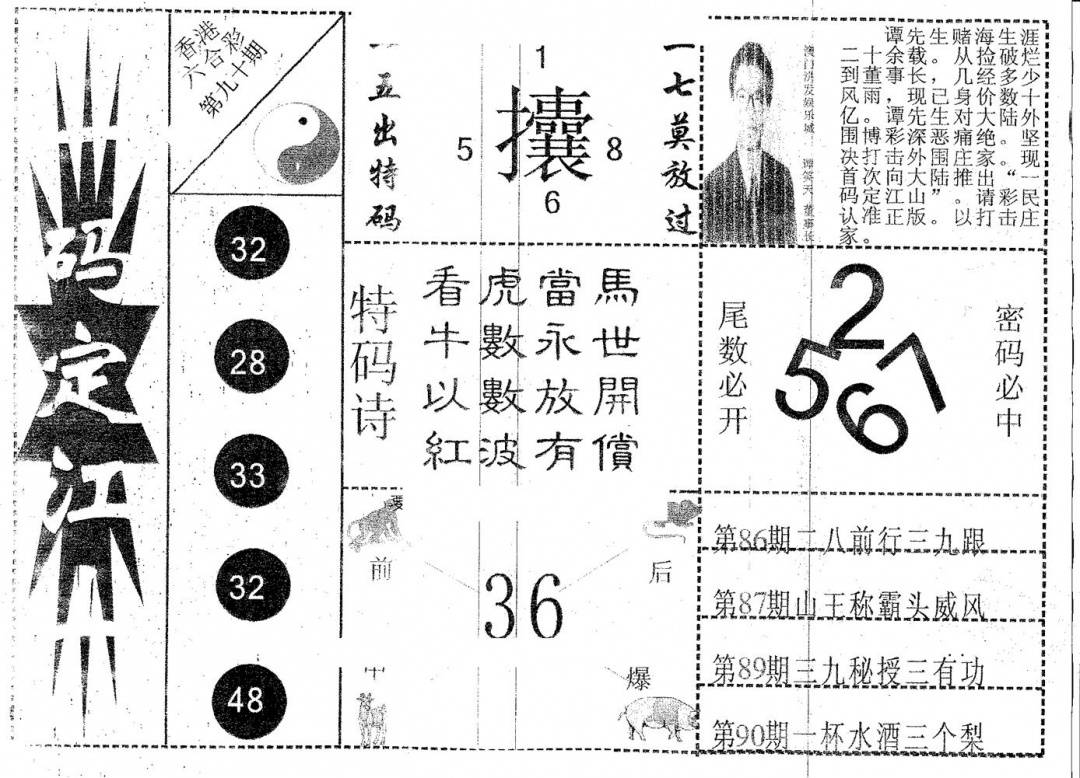 码定江山
香港
六合彩
第九十期
32
28
33
32
48
一五出特码
1
5
攮
8
6
一七莫放过
澳门洪发娱乐城 谭笑天 董事长
谭先生赌海生涯
二十余载。从捡破烂
到董事长，几经多少
风雨，现已身价数十
亿。谭先生对大陆外
围博彩深恶痛绝。坚
决打击外围庄家。现
首次向大陆推出“一
码定江山”。请彩民
认准正版。以打击庄
家。
特码诗
看虎當馬
牛數永世
以數放開
紅波有償
尾数必开
2
5
7
6
密码必中
前
后
36
中
爆
第86期二八前行三九跟
第87期山王称霸头威风
第89期三九秘授三有功
第90期一杯水酒三个梨